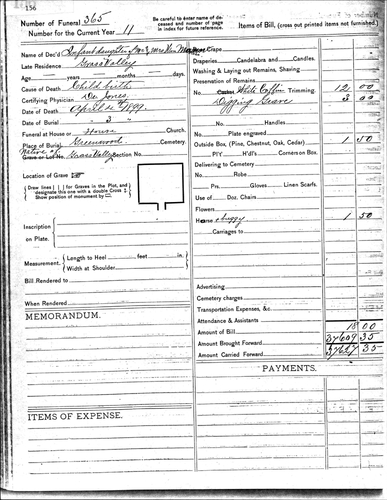 156
Number of Funeral 365
Number for the Current Year 11
Be careful to enter name of deceased and number of page in index for future reference.
Items of Bill, (cross out printed items not furnished.)
Name of Dec'd Infant daughter Mr & Mrs Wm
Late Residence Grass Valley
Age years months days.
Cause of Death Child birth
Certifying Physician Dr. Jones
Date of Death April 2 1899.
Date of Burial 3 "
Funeral at House or House Church.
Place of Burial Greenwood Cemetery.
Native of
Grave or Lot No. Grass Valley Section No.
Location of Grave
Draw lines [ ] for Graves in the Plot, and designate this one with a double Cross
Show position of monument by
Inscription on Plate.
Measurement. Length to Heel feet in.
Width at Shoulder
Bill Rendered to
When Rendered
MEMORANDUM.
ITEMS OF EXPENSE.
Crape
Draperies Candelabra and Candles.
Washing & Laying out Remains, Shaving
Preservation of Remains
No. Casket White Coffin Trimming. 12 00
Digging Grave 3 00
No. Handles
No. Plate engraved
Outside Box, (Pine, Chestnut, Oak, Cedar) 1 50
P'l'r H'dl's Corners on Box.
Delivering to Cemetery
No. Robe
Pr. Gloves Linen Scarfs.
Use of Doz. Chairs
Flowers
Hearse Buggy 1 50
Carriages to
Advertising
Cemetery charges
Transportation Expenses, &c
Attendance & Assistants
Amount of Bill 18 00
Amount Brought Forward 37609 35
Amount Carried Forward 37627 35
PAYMENTS.